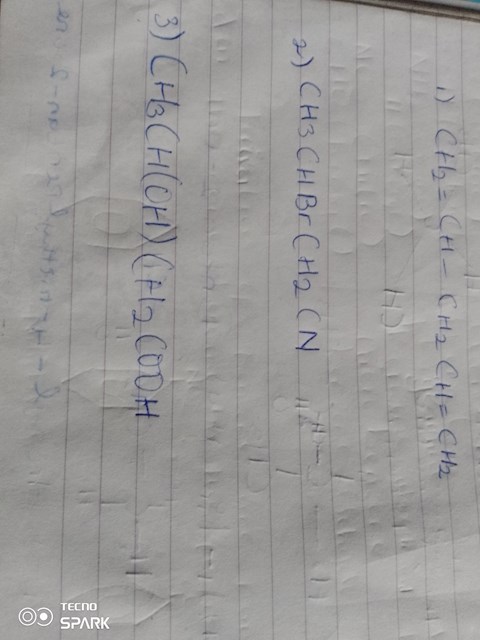 1) CH2=CH-CH2CH=CH2
2) CH3CHBrCH2CN
3) CH3CH(OH)CH2COOH
TECNO
SPARK